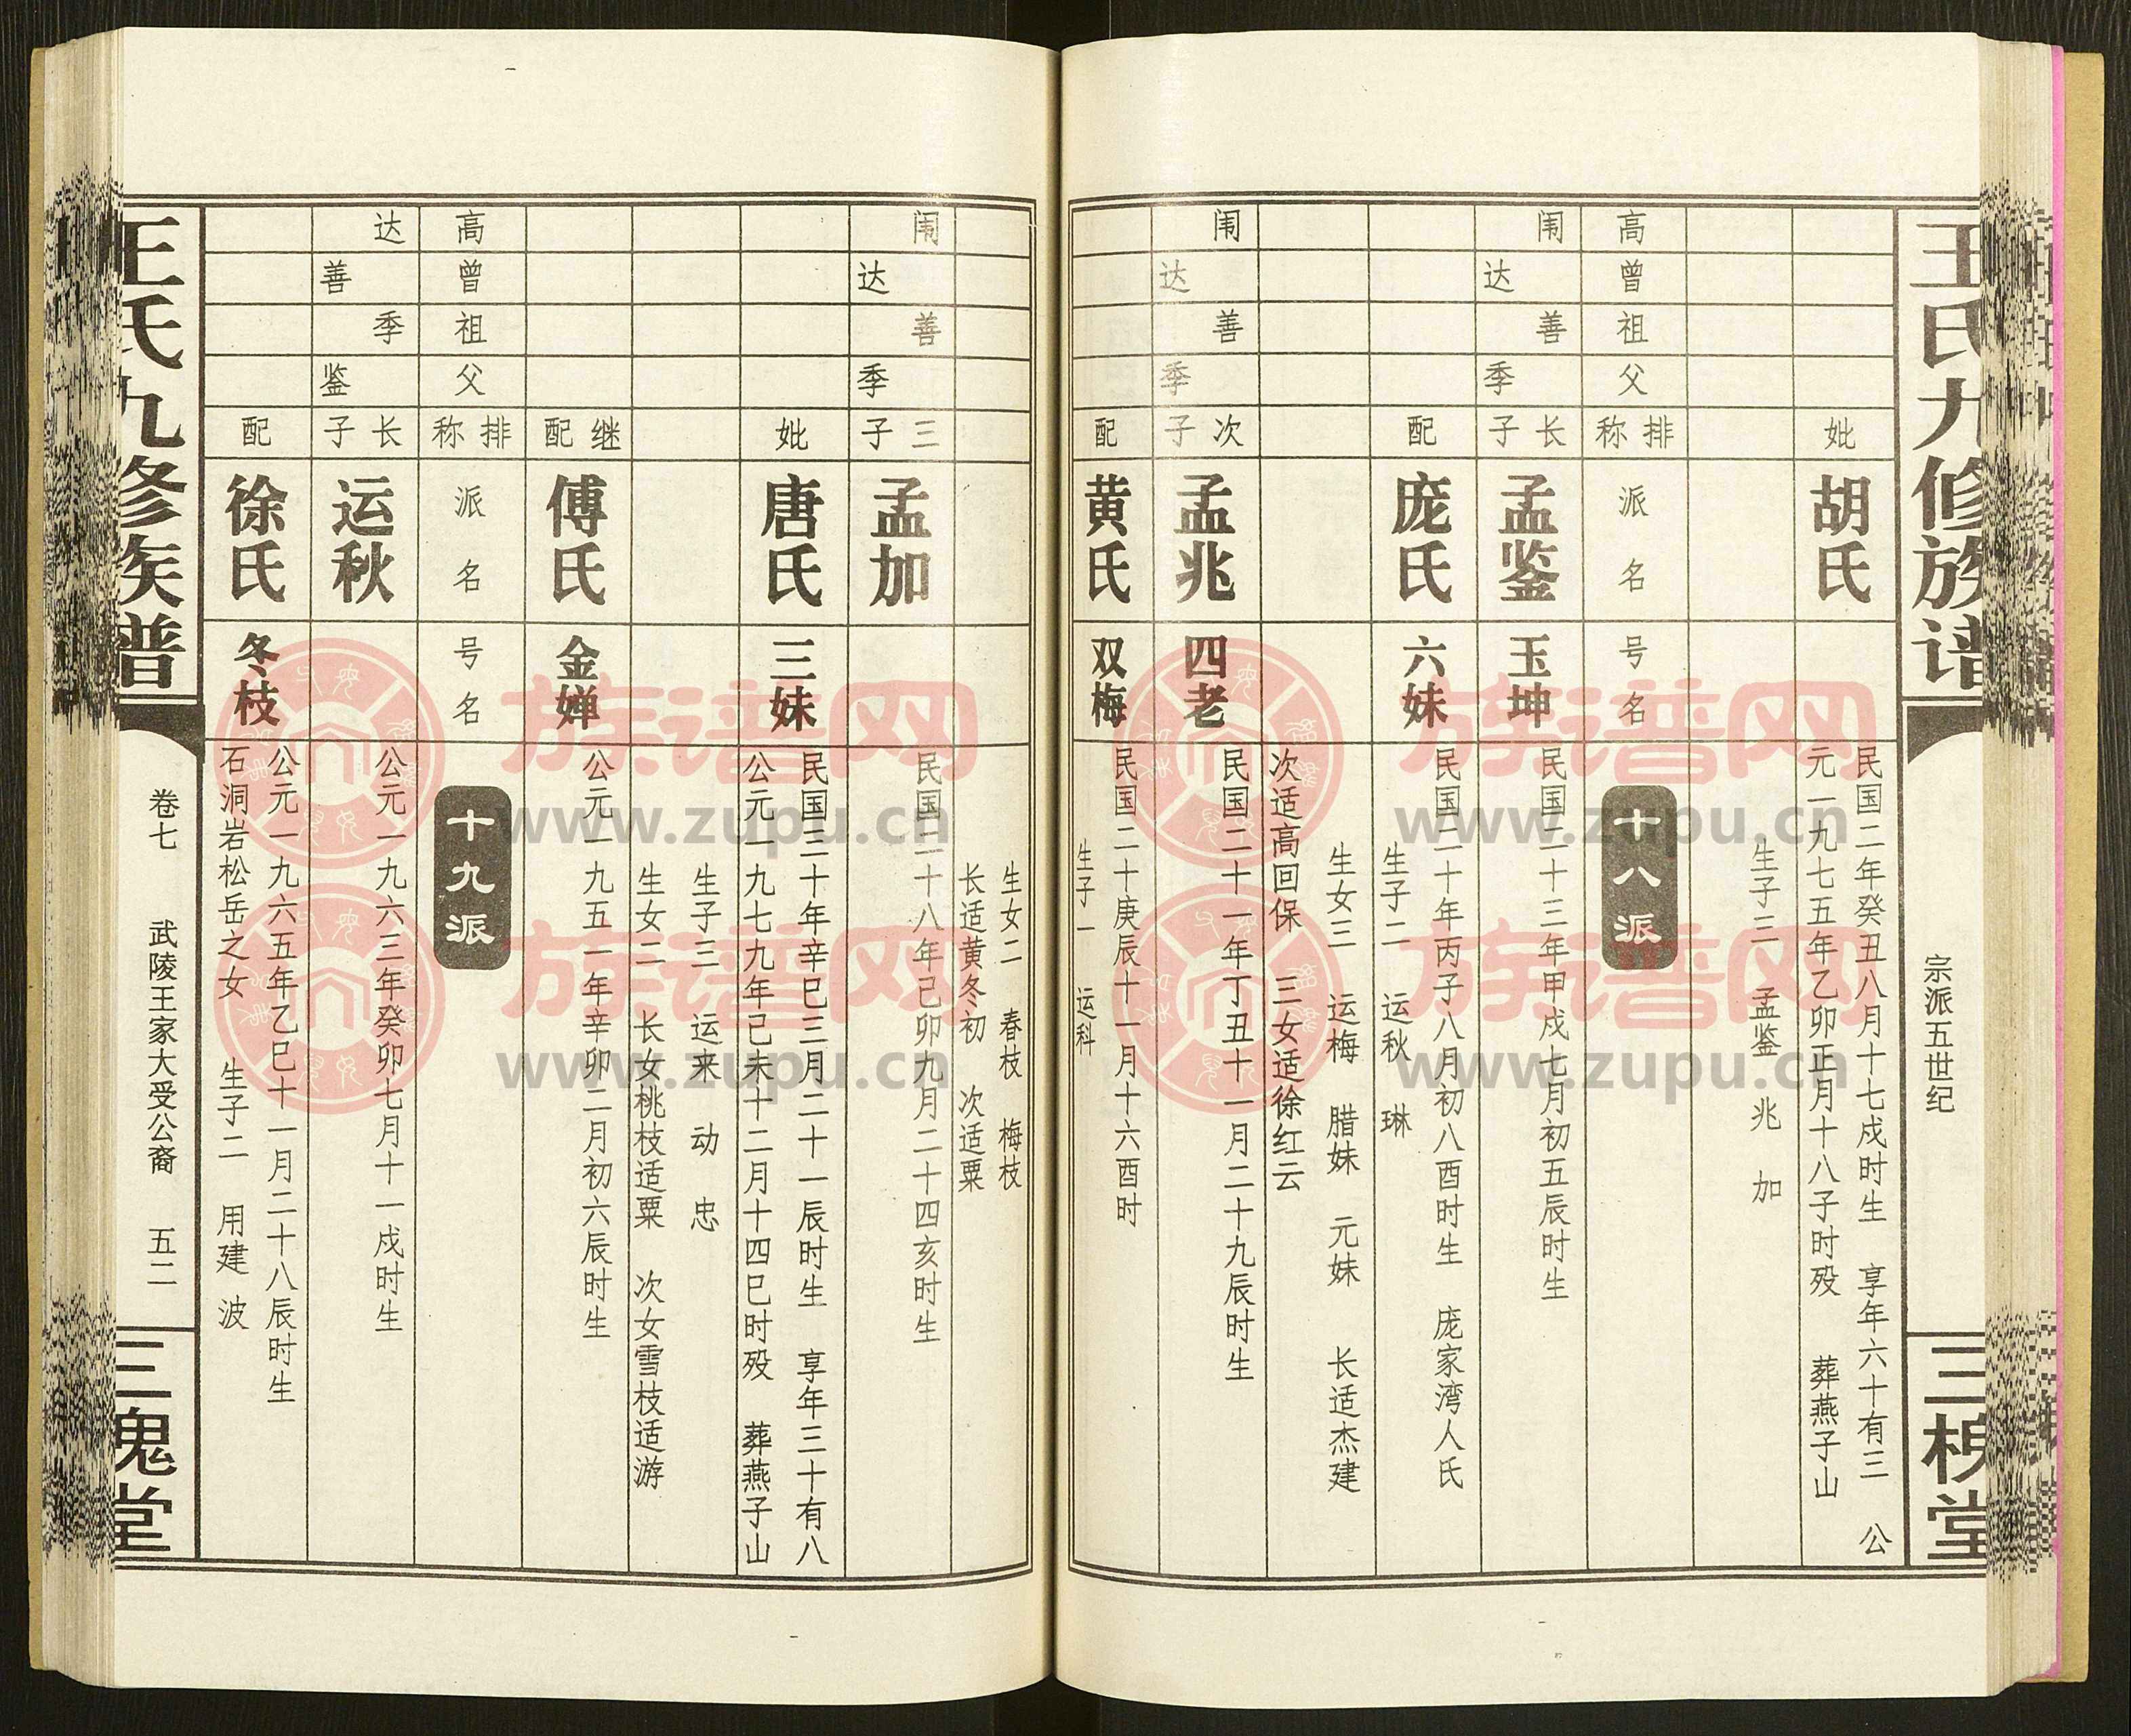 王氏九修族谱
宗派五世纪
三槐堂
妣
胡氏
民国二年癸丑八月十七戌时生 享年六十有三 公
元一九七五年乙卯正月十八子时殁 葬燕子山
生子三 孟鉴 兆 加
高
曾
祖
父
排称
派名
号名
十八派
闱
达
善
季
长子
孟鉴
玉坤
民国二十三年甲戌七月初五辰时生
配
庞氏
六妹
民国二十年丙子八月初八酉时生 庞家湾人氏
生子二 运秋 琳
生女三 运梅 腊妹 元妹 长适杰建
次适高回保 三女适徐红云
闱
达
善
季
次子
孟兆
四老
民国二十一年丁丑十一月二十九辰时生
配
黄氏
双梅
民国二十庚辰十一月十六酉时
生子一 运科
生女二 春枝 梅枝
长适黄冬初 次适粟
闱
达
善
季
三子
孟加
民国二十八年己卯九月二十四亥时生
妣
唐氏
三妹
民国三十年辛巳三月二十一辰时生 享年三十有八
公元一九七九年己未十二月十四巳时殁 葬燕子山
生子三 运来 动 忠
生女二 长女桃枝适粟 次女雪枝适游
继配
傅氏
金婵
公元一九五一年辛卯二月初六辰时生
高
曾
祖
父
排称
派名
号名
十九派
达
善
季
鉴
长子
运秋
公元一九六三年癸卯七月十一戌时生
配
徐氏
冬枝
公元一九六五年乙巳十一月二十八辰时生
石洞岩松岳之女 生子二 用建 波
王氏九修族谱
卷七 武陵王家大受公裔 五二
三槐堂
族谱网
www.zupu.cn
族谱网
www.zupu.cn
族谱网
www.zupu.cn
族谱网
www.zupu.cn